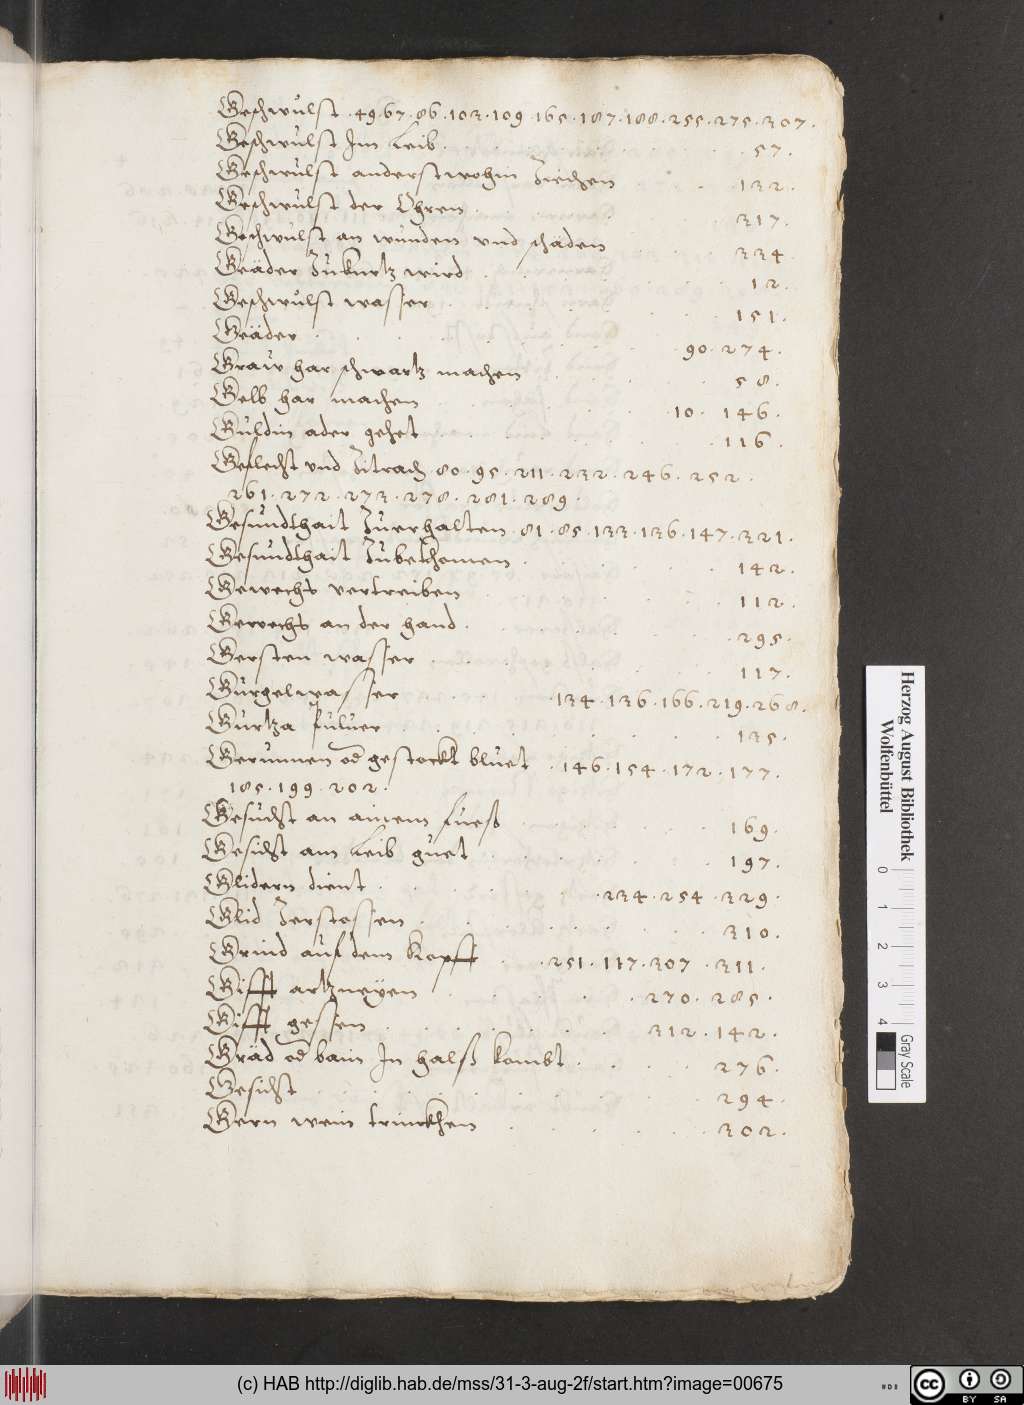 Geschwulst . 49 . 67 . 86 . 103 . 109 . 165 . 187 . 188 . 255 . 275 . 307 .
Geschwulst Im Leib . 57 .
Geschwulst anderstwohin Ziechen 132 .
Geschwulst der Ohren . 317 .
Geschwulst an wunden vnd schäden 334 .
Geäder Zukurtz wird . 12 .
Geschwulst wasser . 151 .
Geäder . 90 . 274 .
Graw har schwartz machen 58 .
Gelb har machen 10 . 146 .
Guldin ader gehet 116 .
Geflecht vnd Zitrach . 80 . 95 . 211 . 232 . 246 . 252 .
261 . 272 . 273 . 278 . 281 . 289 .
Gesundthait Zuerhalten . 81 . 85 . 133 . 136 . 147 . 321 .
Gesundthait Zubekhomen . 142 .
Gewechs vertreiben 112 .
Gewechs an der hand . 295 .
Gersten wasser . 117 .
Gurgelwasser . 134 . 136 . 166 . 219 . 268 .
Gurtza puluer . 135 .
Gerunnen od gestockt bluet . 146 . 154 . 172 . 177 .
185 . 199 . 202 .
Gesücht an ainem fueß . 169 .
Gesicht am Leib guet . 197 .
Glidern dient . 234 . 254 . 329 .
Glid Zerstossen . 310 .
Grind auf dem Kopff . 251 . 117 . 307 . 311 .
Gifft artzneyen . 270 . 285 .
Gifft gessen . 312 . 142 .
Gräd od bain In halß kombt . 276 .
Gesicht . 294 .
Gern wein trinckhen . 302 .
Herzog August Bibliothek
Wolfenbüttel
0 1 2 3 4
Gray Scale
(c) HAB http://diglib.hab.de/mss/31-3-aug-2f/start.htm?image=00675
cc BY SA